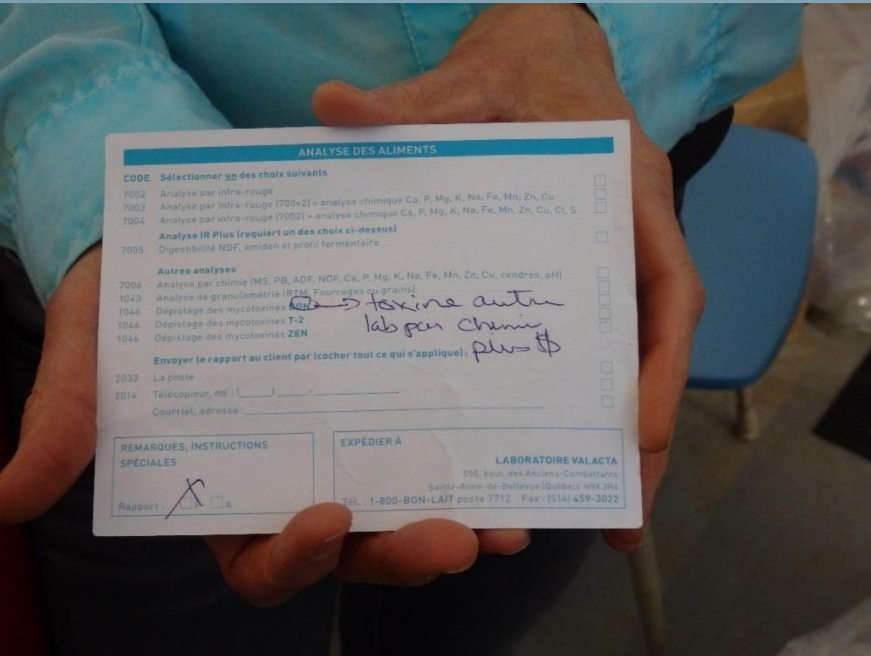 ANALYSE DES ALIMENTS
CODE Sélectionner un des choix suivants
7002 Analyse par infra-rouge
7003 Analyse par infra-rouge (700v2) + analyse chimique Ca, P, Mg, K, Na, Fe, Mn, Zn, Cu
7004 Analyse par infra-rouge (7002) + analyse chimique Ca, P, Mg, K, Na, Fe, Mn, Zn, Cu, Cl, S
Analyse IR Plus (requiert un des choix ci-dessus)
7005 Digestibilité NDF, amidon et profil fermentaire
Autres analyses
7006 Analyse par chimie (MS, PB, ADF, NDF, Ca, P, Mg, K, Na, Fe, Mn, Zn, Cu, cendres, pH)
1043 Analyse de granulométrie (RTM, Fourrages ou grains)
1046 Dépistage des mycotoxines DON toxine autre
1046 Dépistage des mycotoxines T-2 lab par chimie
1046 Dépistage des mycotoxines ZEN plus $
Envoyer le rapport au client par (cocher tout ce qui s'applique) :
2033 La poste
2014 Télécopieur, no. : (____) ____-____________
Courriel, adresse : ____________
REMARQUES, INSTRUCTIONS
SPÉCIALES
Rapport : X A
EXPÉDIER À
LABORATOIRE VALACTA
555, boul. des Anciens-Combattants
Sainte-Anne-de-Bellevue (Québec) H9X 3R4
Tél. : 1-800-BON-LAIT poste 7712 Fax : (514) 459-3022